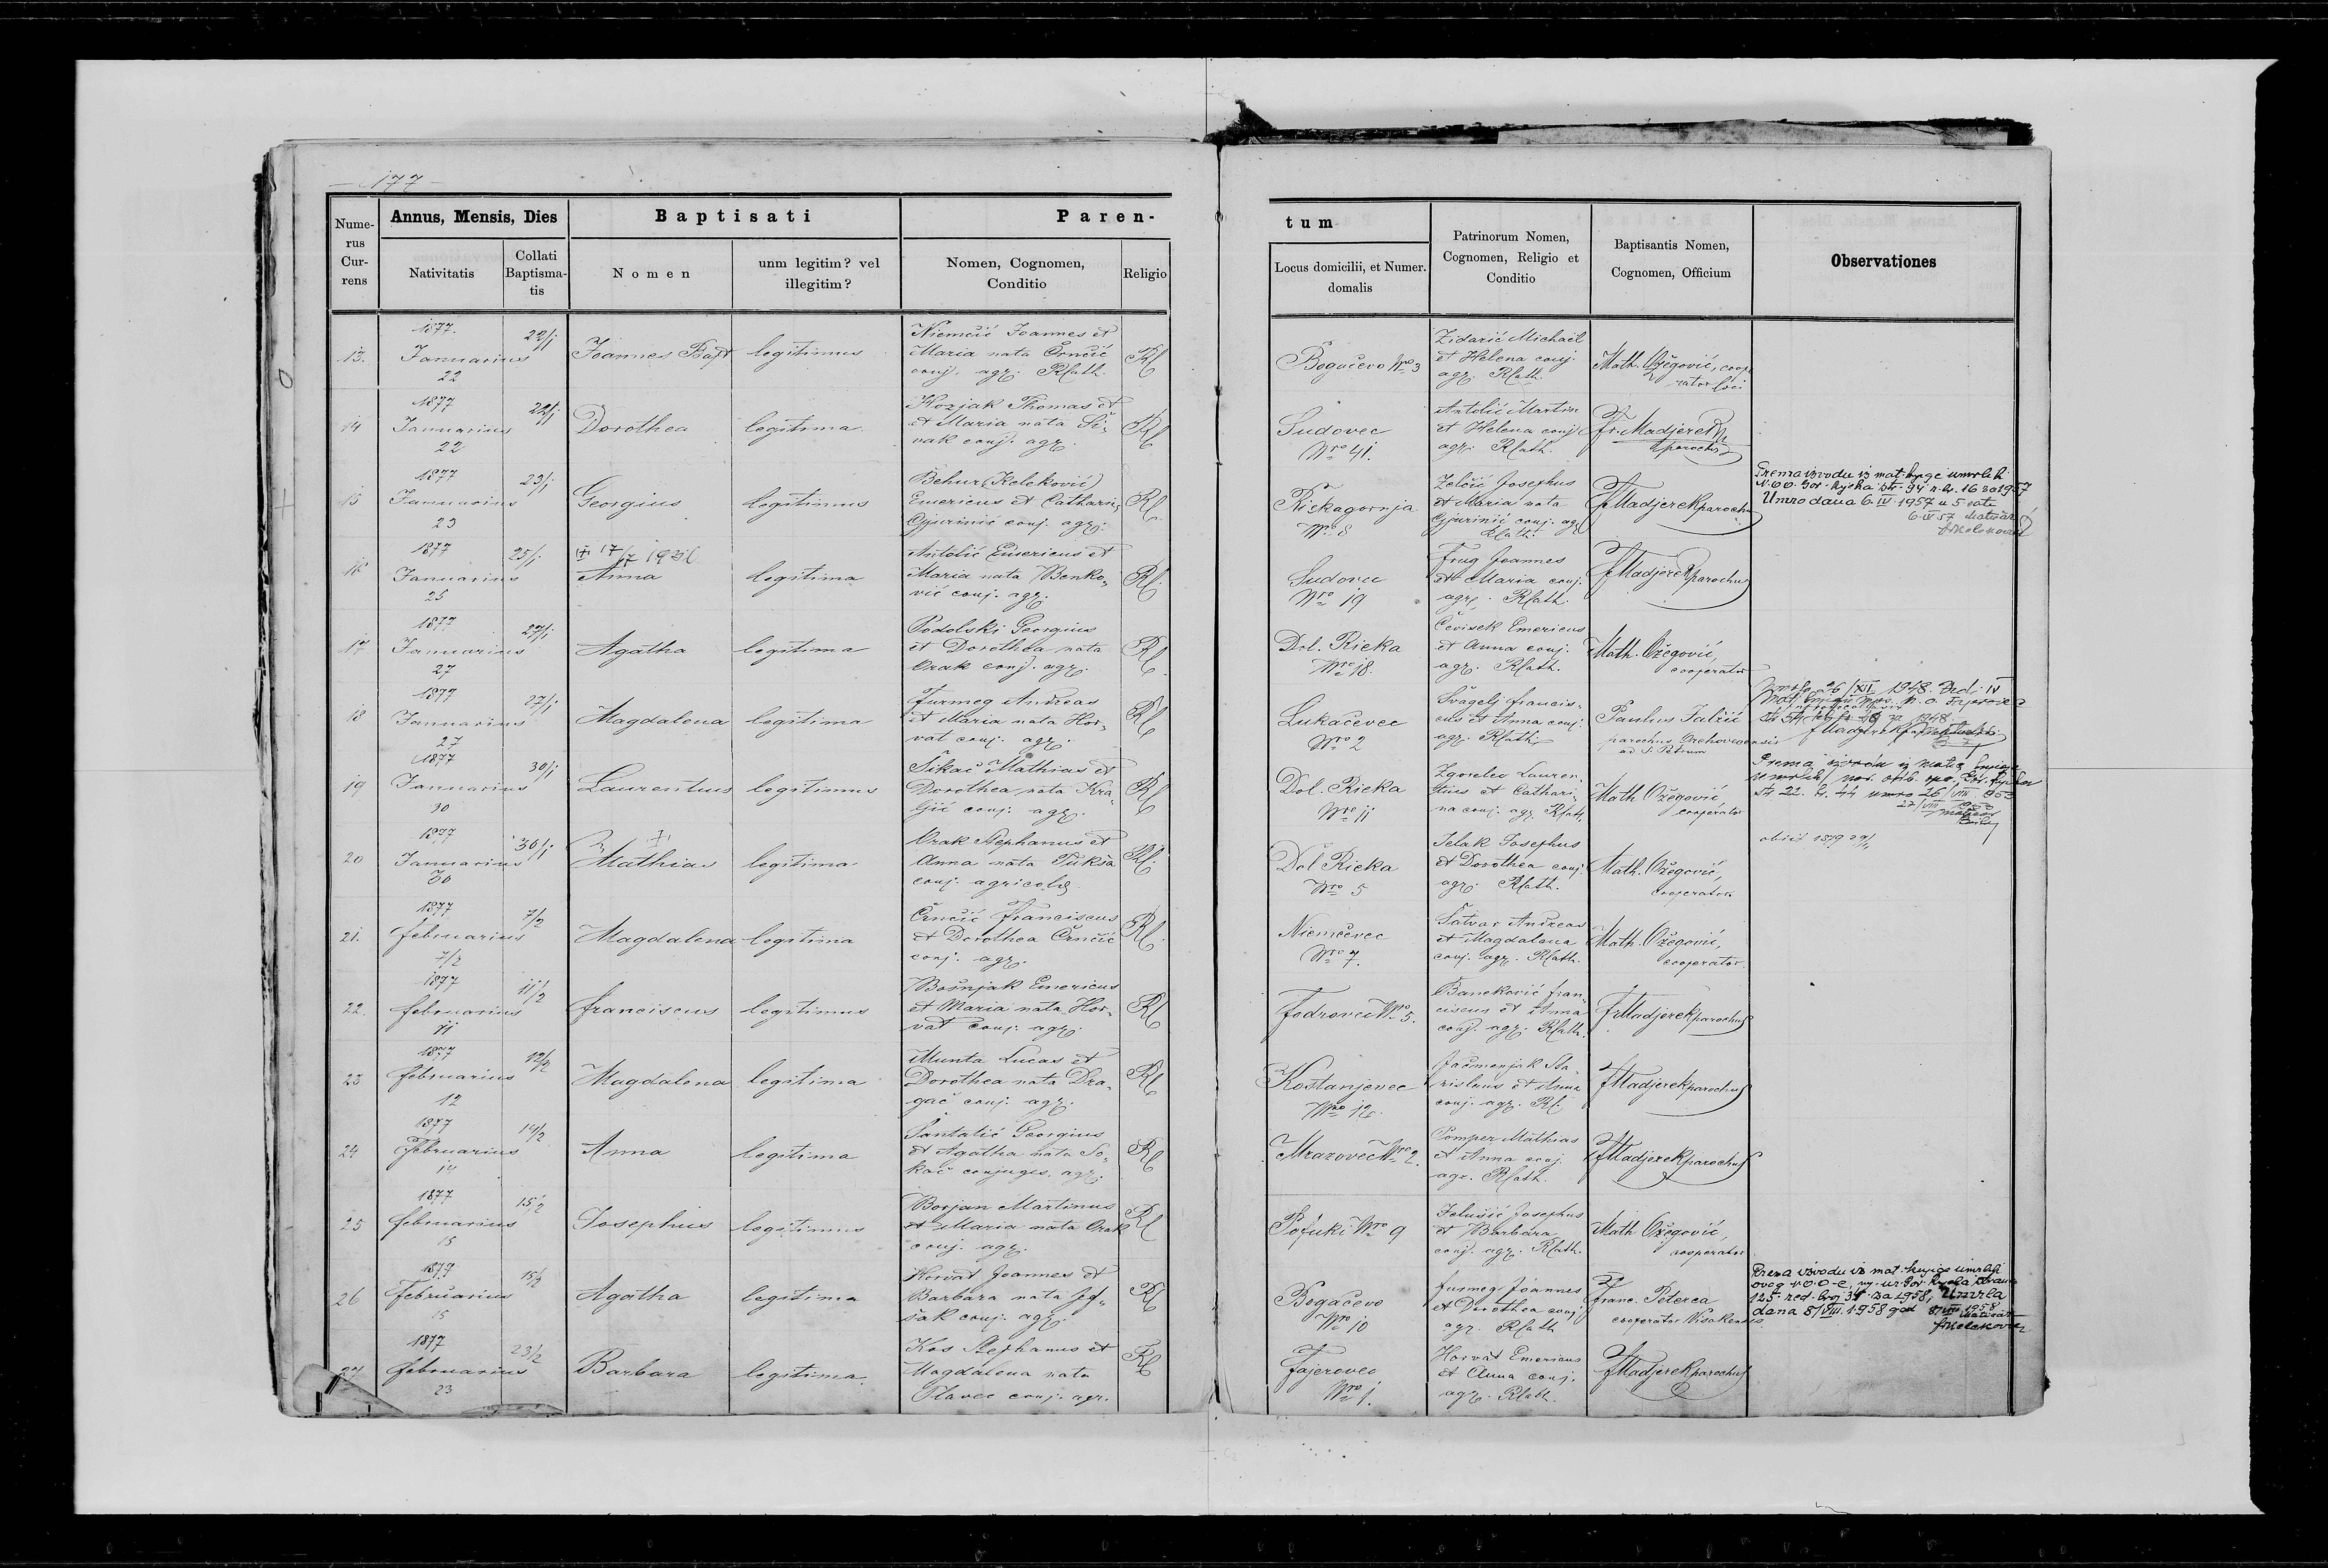 — 177 —
Nume-
rus
Cur-
rens
Annus, Mensis, Dies
Nativitatis
Collati
Baptisma-
tis
Baptisati
Nomen
unm legitim? vel
illegitim?
Paren-
Nomen, Cognomen,
Conditio
Religio
tum
Locus domicilii, et Numer.
domalis
Patrinorum Nomen,
Cognomen, Religio et
Conditio
Baptisantis Nomen,
Cognomen, Officium
Observationes
13.
1877.
Januarius
22
22/1
Joannes Bapt
legitimus
Niemčić Joannes et
Maria nata Črnčić
conj. agr. RCath.
RC
Bogačevo Nro 3
Zidarić Michael
et Helena conj.
agr. RCath.
Math. Ožegović, coope
rator loci
14
1877
Januarius
22
22/1
Dorothea
legitima
Kozjak Thomas et
et Maria nata Si-
vak conj. agr.
RC
Sudovec
Nro 41.
Antolić Martin
et Helena conj.
agr. RCath.
Fr. Madjerek
parochus
15
1877
Januarius
23
23/1
Georgius
legitimus
Behur (Keleković)
Emericus et Cathari-
Gjurinić conj. agr.
RC
Riekagornja
Nro 8
Zelčić Josephus
et Maria nata
Gjurinić conj. agr
RCath.
FMadjerek parochus
Prema izvodu iz mat. knjige umrlih
N.O.O. Gor. Rijeka str. 94 r. br. 16 za 1957
Umro dana 6. IV. 1957 u 5 sati
6. IV 57 Matičar
16
1877
Januarius
25
25/1
+ 17/7 193
Anna
legitima
Antolić Emericus et
Maria nata Benko-
vić conj. agr.
RC.
Sudovec
Nro 19
Frug Joannes
et Maria conj.
agr. RCath.
FMadjerek parochus
17
1877
Januarius
27
27/1
Agatha
legitima
Podolski Georgius
et Dorothea nata
Orak conj. agr.
RC.
Dol. Rieka
Nro 18.
Čevisek Emericus
et Anna conj.
agr. RCath.
Math. Ožegović,
cooperator
18
1877
Januarius
27
27/1
Magdalena
legitima
Furmeg Andreas
et Maria nata Hor-
vat conj. agr.
RC
Lukačevec
Nro 2
Svagelj Francis-
cus et Anna conj.
agr. RCath.
Paulus Julšić
parochus Orehovecensis
ad S. Petrum
26/XII 1948.
19
1877
Januarius
30
30/1
Laurentius
legitimus
Sikač Mathias et
Dorothea nata Kra-
ljić conj. agr.
RC
Dol. Rieka
Nro 11
Zgorelec Lauren-
tius et Cathari-
na conj. agr. RCath.
Math Ožegović
cooperator
Prema izvodu iz matič. knjige
umrlih
str 22. br. 44 umro 26/VIII. 1953
27/VIII 1953
matičar
20
1877
Januarius
30
30/1
+
Mathias
legitima
Orak Stephanus et
Anna nata Tukša
conj. agricolæ
RC.
Dol Rieka
Nro 5
Jelak Josephus
et Dorothea conj.
agr. RCath.
Math. Ožegović,
cooperator.
obiit 1879 29/1
21.
1877
februarius
7/2
7/2
Magdalena
legitima
Črnčić Franciscus
et Dorothea Črnčić
conj. agr.
RC.
Niemčevec
Nro 7.
Šatvar Andreas
et Magdalena
conj. agr. RCath.
Math. Ožegović,
cooperator.
22.
1877
februarius
11
11/2
franciscus
legitimus
Bošnjak Emericus
et Maria nata Hor-
vat conj. agr.
RC
Fodrovci Nro 5.
Baneković fran-
ciscus et Anna
conj. agr. RCath.
FrMadjerek parochus
23
1877
februarius
12
12/2
Magdalena
legitima
Munta Lucas et
Dorothea nata Dra-
gač conj. agr.
RC
Kostanjevec
Nro 12.
Jačmenjak Ba-
risluus et Anna
conj. agr. RC.
FMadjerek parochus
24
1877
Februarius
14
14/2
Anna
legitima
Šantalić Georgius
et Agatha nata So-
kač conjuges. agr.
RC
Mrazovec Nro 2.
Pomper Mathias
et Anna conj.
agr. RCath.
FMadjerek parochus
25
1877
februarius
15
15/2
Josephus
legitimus
Borjan Martinus
et Maria nata Orak
conj. agr.
RC
Pofuki Nro 9
Jelušić Josephus
et Barbara
conj. agr. RCath.
Math Ožegović,
cooperator
26
1877
Februarius
15
15/2
Agatha
legitima
Horvat Joannes et
Barbara nata Jed-
šak conj. agr.
RC
Bogačevo
Nro 10
furmeg Joannes
et Dorothea conj.
agr. RCath
Franc. Peterca
cooperator Visokensis
Prema izvodu iz mat. knjige umrlih
125 red. broj 31 za 1958, Umrla
dana 8/VIII. 1958 god
8/VIII 1958
Matičar
27
1877
februarius
23
23/2
Barbara
legitima.
Kos Stephanus et
Magdalena nata
Plavec conj. agr.
RC
Fajerovec
Nro 1.
Horvat Emericus
et Anna conj.
agr. RCath.
FMadjerek parochus